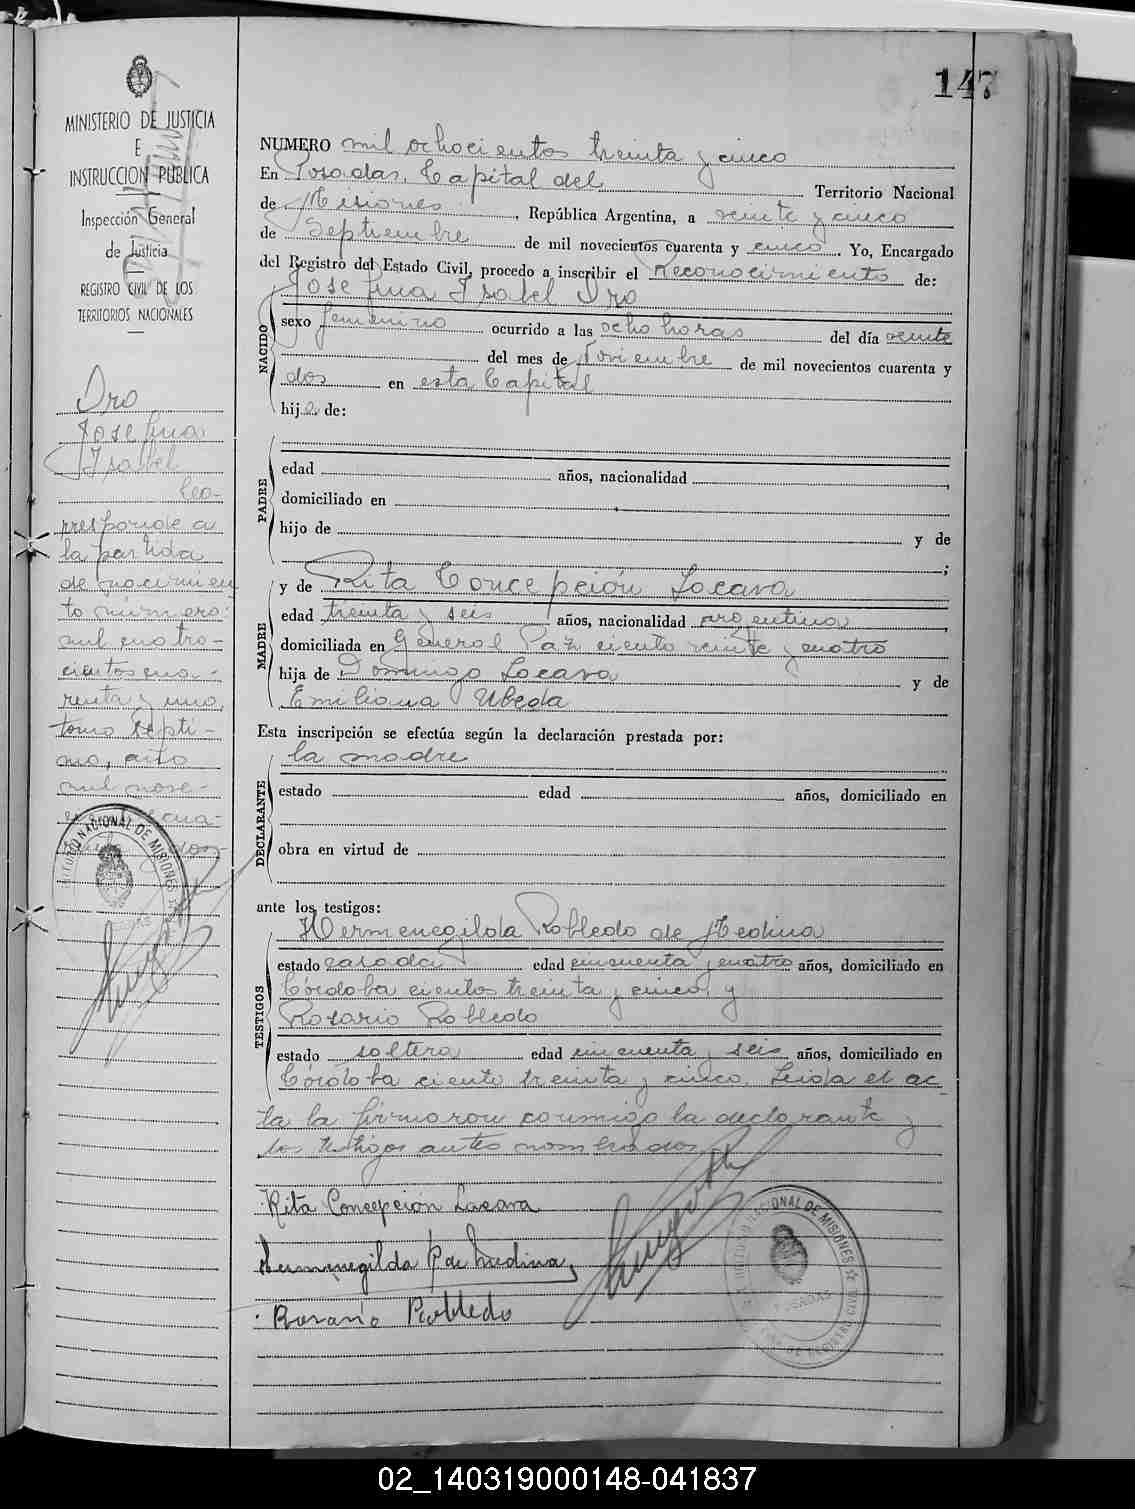 147
MINISTERIO DE JUSTICIA
E
INSTRUCCION PUBLICA
Inspección General
de Justicia
REGISTRO CIVIL DE LOS
TERRITORIOS NACIONALES
Oro
Josefina
Isabel
Co-
rresponde a
la partida
de nacimien
to número:
mil cuatro-
cientos cua-
renta y uno,
tomo septi-
mo, año
mil nove-
cua-
dos-
NUMERO mil ochocientos treinta y cinco
En Posadas, Capital del Territorio Nacional
de Misiones, República Argentina, a veinte y cinco
de Septiembre de mil novecientos cuarenta y cinco. Yo, Encargado
del Registro del Estado Civil, procedo a inscribir el Reconocimiento de:
Josefina Isabel Oro
NACIDO
sexo femenino ocurrido a las ocho horas del día veinte
del mes de Noviembre de mil novecientos cuarenta y
dos en esta Capital
hija de:
PADRE
edad años, nacionalidad ,
domiciliado en
hijo de y de
;
MADRE
y de Rita Concepción Locava
edad treinta y seis años, nacionalidad argentina,
domiciliada en General Paz ciento veinte y cuatro
hija de Domingo Locava y de
Emiliana Ubeda
Esta inscripción se efectúa según la declaración prestada por:
la madre
DECLARANTE
estado edad años, domiciliado en
obra en virtud de
ante los testigos:
TESTIGOS
Hermenegilda Robledo de Medina
estado casada edad cincuenta y cuatro años, domiciliado en
Córdoba ciento treinta y cinco, y
Rosario Robledo
estado soltera edad cincuenta y seis años, domiciliado en
Córdoba ciento treinta y cinco. Leida el ac
ta la firmaron conmigo la declarante y
los testigos antes nombrados
Rita Concepción Lacava
Hermenegilda R de Medina
Rosario Robledo
NACIONAL DE MISIONES
POSADAS
NACIONAL DE MISIONES
02_140319000148-041837